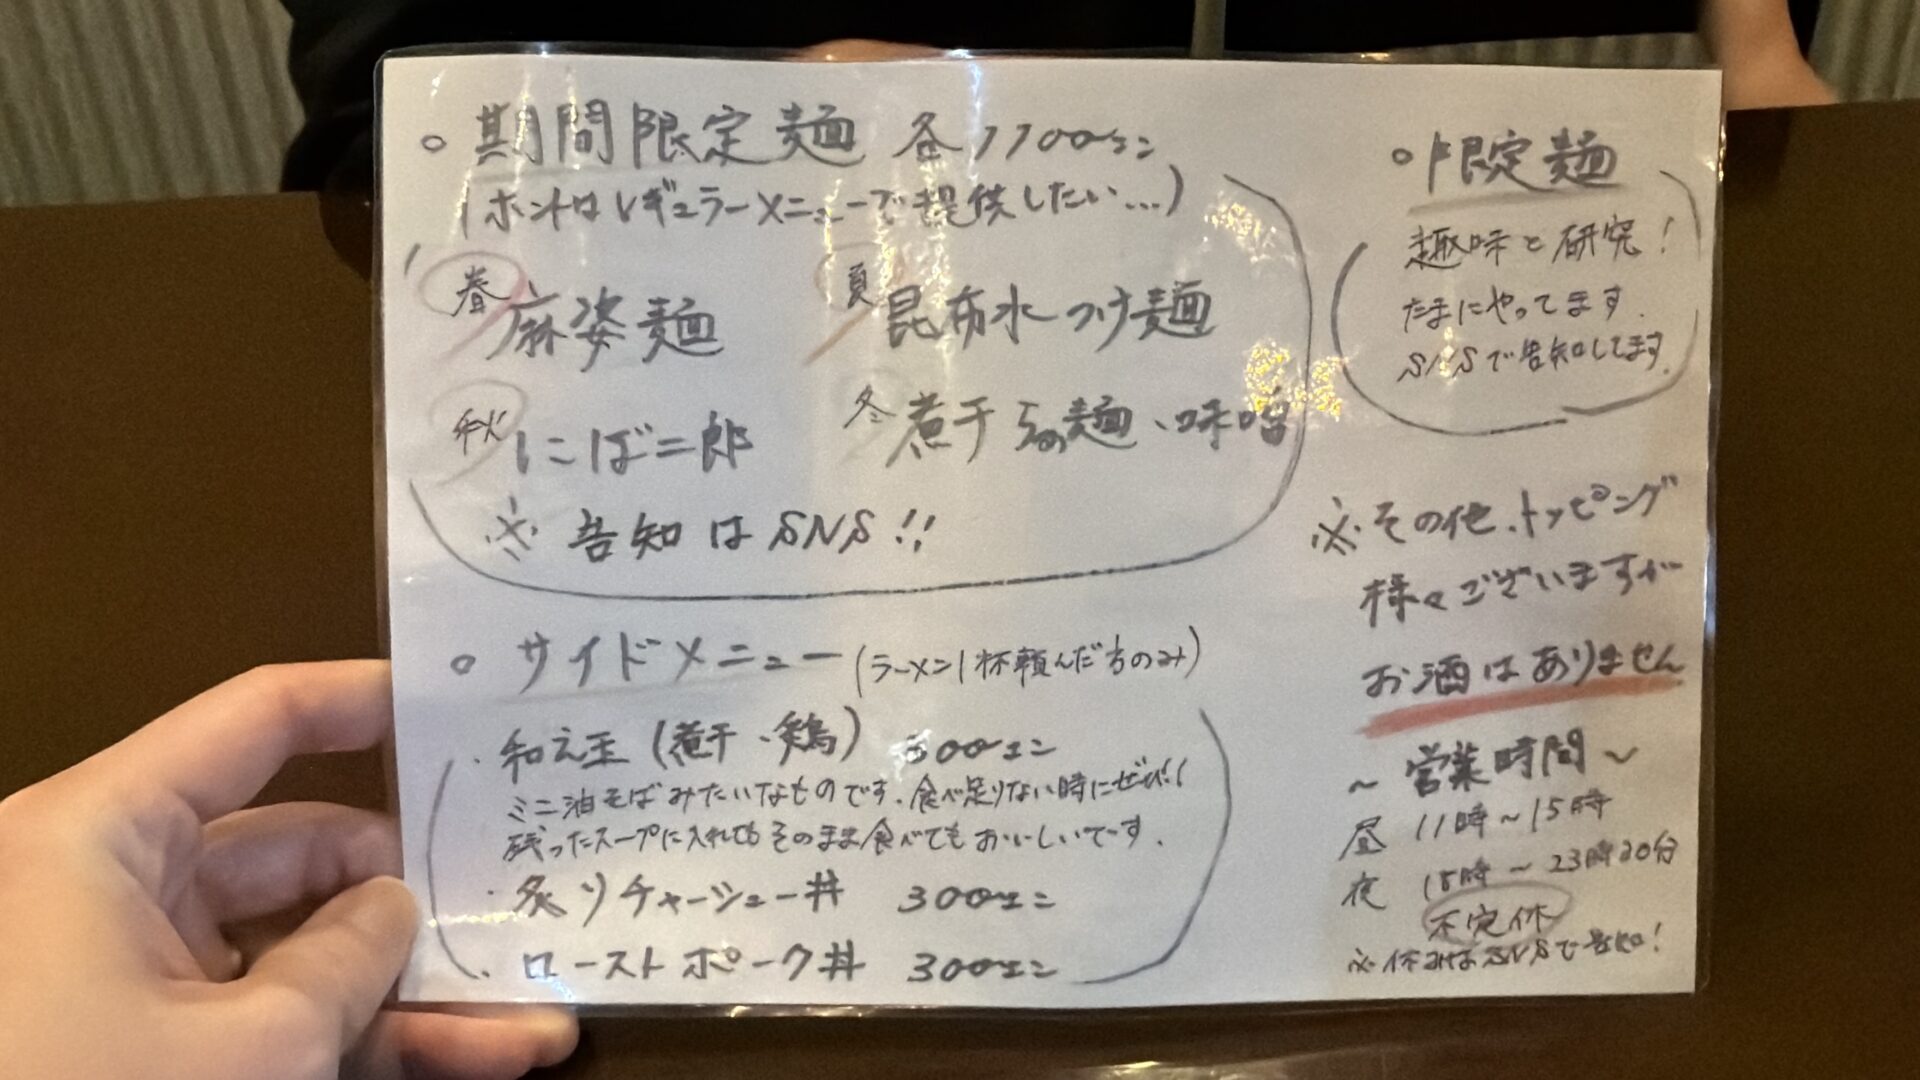 ○ 期間限定麺 各1100エン
(ホントはレギュラーメニューで提供したい…)
春 麻婆麺
夏 昆布水つけ麺
秋 にこば二郎
冬 煮干らぁ麺、味噌
※ 告知はSNS!!
○ サイドメニュー(ラーメン1杯頼んだ方のみ)
・和え玉(煮干・鶏) 300エン
ミニ油そばみたいなものです。食べ足りない時にぜひ!!
残ったスープに入れてもそのまま食べてもおいしいです。
・炙りチャーシュー丼 300エン
・ローストポーク丼 300エン
○ 限定麺
趣味と研究!
たまにやってます。
SNSで告知してます。
※その他、トッピング
様々ございますが
お酒はありません
~営業時間~
昼 11時~15時
夜 18時~23時30分
不定休
※休みはSNSで告知!